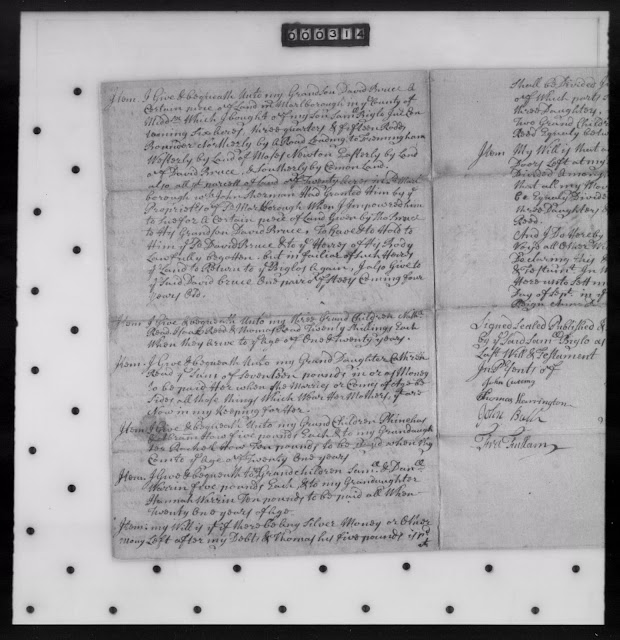 000314
Item. I Give & bequeath Unto my Grandson David Bruce A
Certain piece of Land in Marlborough in ye County of
Middx Which I bought of my Son Saml Bigl Jur Con
taining Six Acres three quarters & fifteen Rods
Bounded Northerly by A Road Leading to Fremingham
Westerly by Land of Newton Easterly by Land
of David Bruce & Southerly by Comon Land.
also all yt parcell of Land of Twenty Acres in sd Marl
borough wch John Sherman Had Granted Him by ye
Proprietrs of sd Marlborough When I Impowered him
to Sue for A Certain piece of Land Given by Bruce
to My Grandson David Bruce, To Have & to Hold to
Him ye sd David Bruce & to ye Heires of His Body
Lawfully begotten but in failure of Such Heirs
ye Land to Return to ye Biglos Again, I also Give to
ye Said David bruce One pair of Steers Coming four
years Old.
Item. I Give & bequeath Unto my three Grand Children
Reed Isaac Reed & Reed Twenty Shillings Each
When they arive to ye Age of One & Twenty years.
Item. I Give & bequeath Unto my Grand Daughter Cathren
Reed ye Sum of Seventeen pounds in or as Money
to be paid Her when She Marries or Comes of Age be
sides all those things Which Was Her Mothers, yt are
Now in my Keeping for Her.
Item. I Give & bequeath Unto my Grand Children Phinehas
& Abram How five pounds Each & to my Grandaugh
ter Rachel How Ten pounds to be Paid when they
Come to ye Age of Twenty One years
Item. I Give & bequeath to Grandchildren Saml & Danl
Warrin five pounds Each & to my Grandaughter
Hannah Warrin Ten pounds to be paid all When
Twenty One years of Age
Item. my Will is yt if there be Any Silver Money or Other
Mony Left after my Debts & Thomas his five pounds is pd
Shall be Divided
of Which parts
three Daughters
Two Grand Children
Reed Equaly betwe
Item My Will is that
Doors Left at my
Divided Among
that all my Mov
be Equaly Divided
three Daughters &
Reed.
And I Do Hereby
Voyd all Other
Declaring this
& Testimt. In W
Hereunto Sett m
Day of Septr. in ye
Reign
Signed Sealed Published &
by ye Said Saml Biglo as
Last Will & Testament
In Psents of
John Cuting
Thomas Harrington
John Ball
Fras Fullam